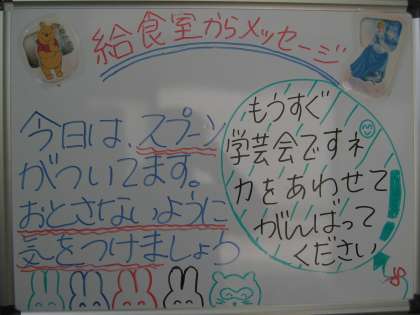 給食室からメッセージ
今日は、スプーン
がついてます。
おとさないように
気をつけましょう
もうすぐ
学芸会ですネ
力をあわせて
がんばって
ください